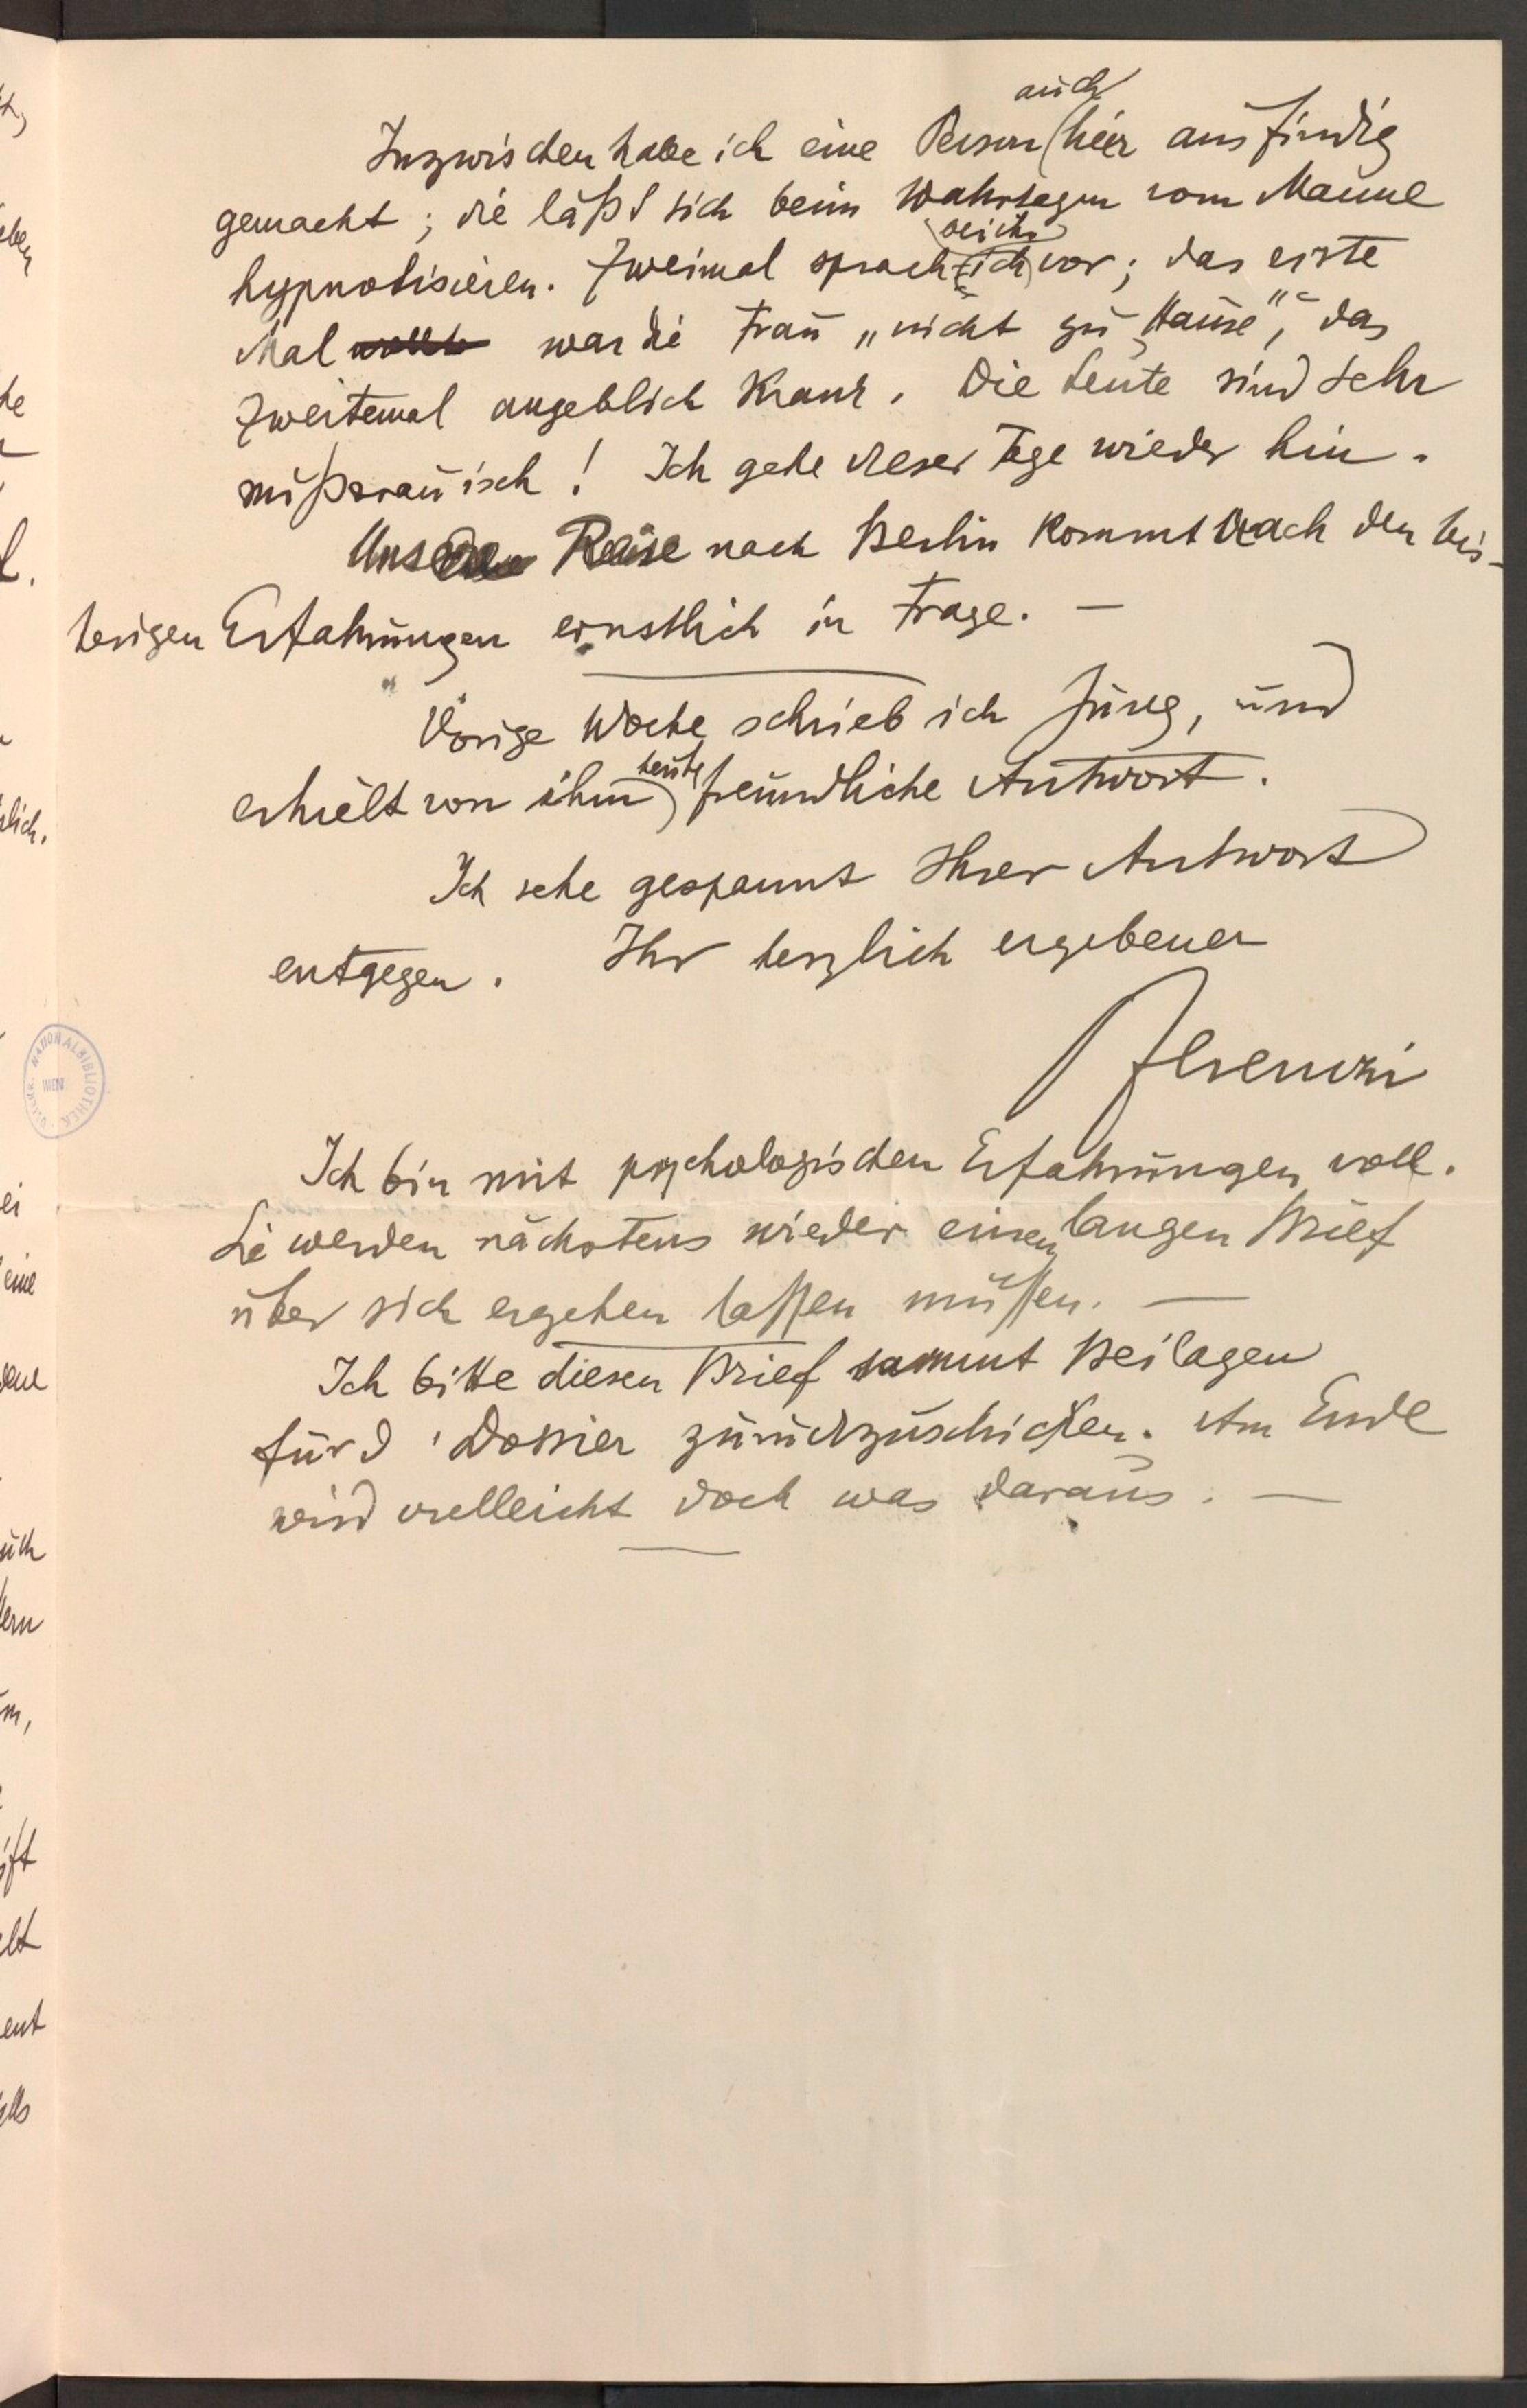 auch
Inzwischen habe ich eine Person hier ausfindig
gemacht; die läßt sich beim Wahrsagen vom Manne
bei ihr
hypnotisieren. Zweimal sprach ich vor; das erste
Mal wollte war die Frau „nicht zu Hause“, das
zweitemal angeblich krank. Die Leute sind sehr
mißtrauisch! Ich gehe dieser Tage wieder hin.
Unsere Reise nach Berlin kommt nach den bis-
herigen Erfahrungen ernstlich in Frage. —
Vorige Woche schrieb ich Jung, und
heute
erhielt von ihm freundliche Antwort.
Ich sehe gespannt Ihrer Antwort
entgegen. Ihr herzlich ergebener
Ferenczi
Ich bin mit psychologischen Erfahrungen voll.
Sie werden nächstens wieder einen langen Brief
über sich ergehen lassen müssen. —
Ich bitte diesen Brief sammt Beilagen
fürs Dossier zurückzuschicken. Am Ende
wird vielleicht doch was daraus. —
NATIONALBIBLIOTHEK
WIEN